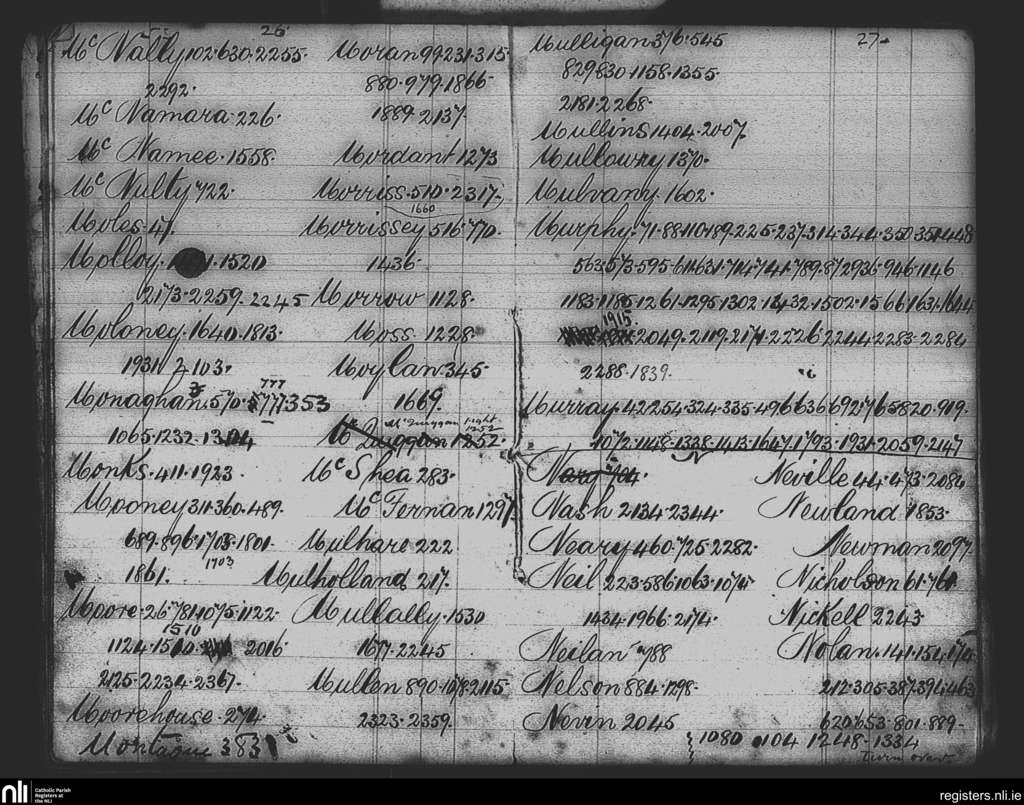 26
McNally 102·630·2255·
2292·
McNamara·226·
McNamee·1558·
McNulty 722·
Moles·47·
Molloy· 1520
2173·2259·2245
Moloney·1640·1813·
1931 2103·
Monaghan·570· 777 353
1065·1232·
Monks·411·1923·
Mooney 311·360·489·
689·896·1703·1801·
1703
1861·
Moore·26·781·1075·1122·
1510
1124· 2016
2125·2234·2367·
Moorehouse·274·
Montague 383
Moran 99·231·315·
880·979·1866·
1889·2137·
Mordant 1273
Morriss·510·2317·
1660
Morrissey 516·770·
1436·
Morrow 1128·
Moss 1228·
Moylan·345·
1669·
McQuiggan right 1252
McQuiggan 1252·
McShea 283·
McFernan 1297
Mulhare 222
Mulholland 217·
Mullally·1530
1677·2245
Mullen 890·1078·2115·
2323·2359·
27
Mulligan 376·545
829·830·1158·1355·
2181·2268·
Mullins 1404·2007
Mullowny 1370·
Mulvany 1602·
Murphy·71·88·110·189·225·237·314·344·350·351·448
563·573·595·611·631·711·741·789·872·936·946·1146
1183·1185·1261·1295·1302·1432·1502·1566·1634·1644
1915
2049·2119·2171·2226·2244·2283·2284
2288·1839·
Murray·42·254·324·335·496·636·692·765·820·919·
1072·1148·1338·1413·1647·1793·1931·2059·2147
N
Nary 704·
Nash 2134·2344·
Neary 460·725·2282·
Neil 223·586·1063·1074
1434·1966·2174·
Neilan 788
Nelson 884·1298·
Nevin 2045
Neville 44·473·2086
Newland 1853·
Newman 2097
Nicholson 61·761
Nickell 2243
Nolan·141·154·174
212·305·387·394·463
620·653·801·889·
1080 1104 1248·1334
Turn over
nli
Catholic Parish
Registers at
the NLI
registers.nli.ie